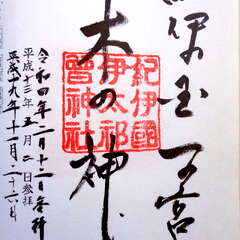 紀伊国 一宮
木の神
紀伊國
伊太祁
曽神社
令和四年二月十二日参拝
平成十三年五月二日参拝
平成十九年十一月二十六日